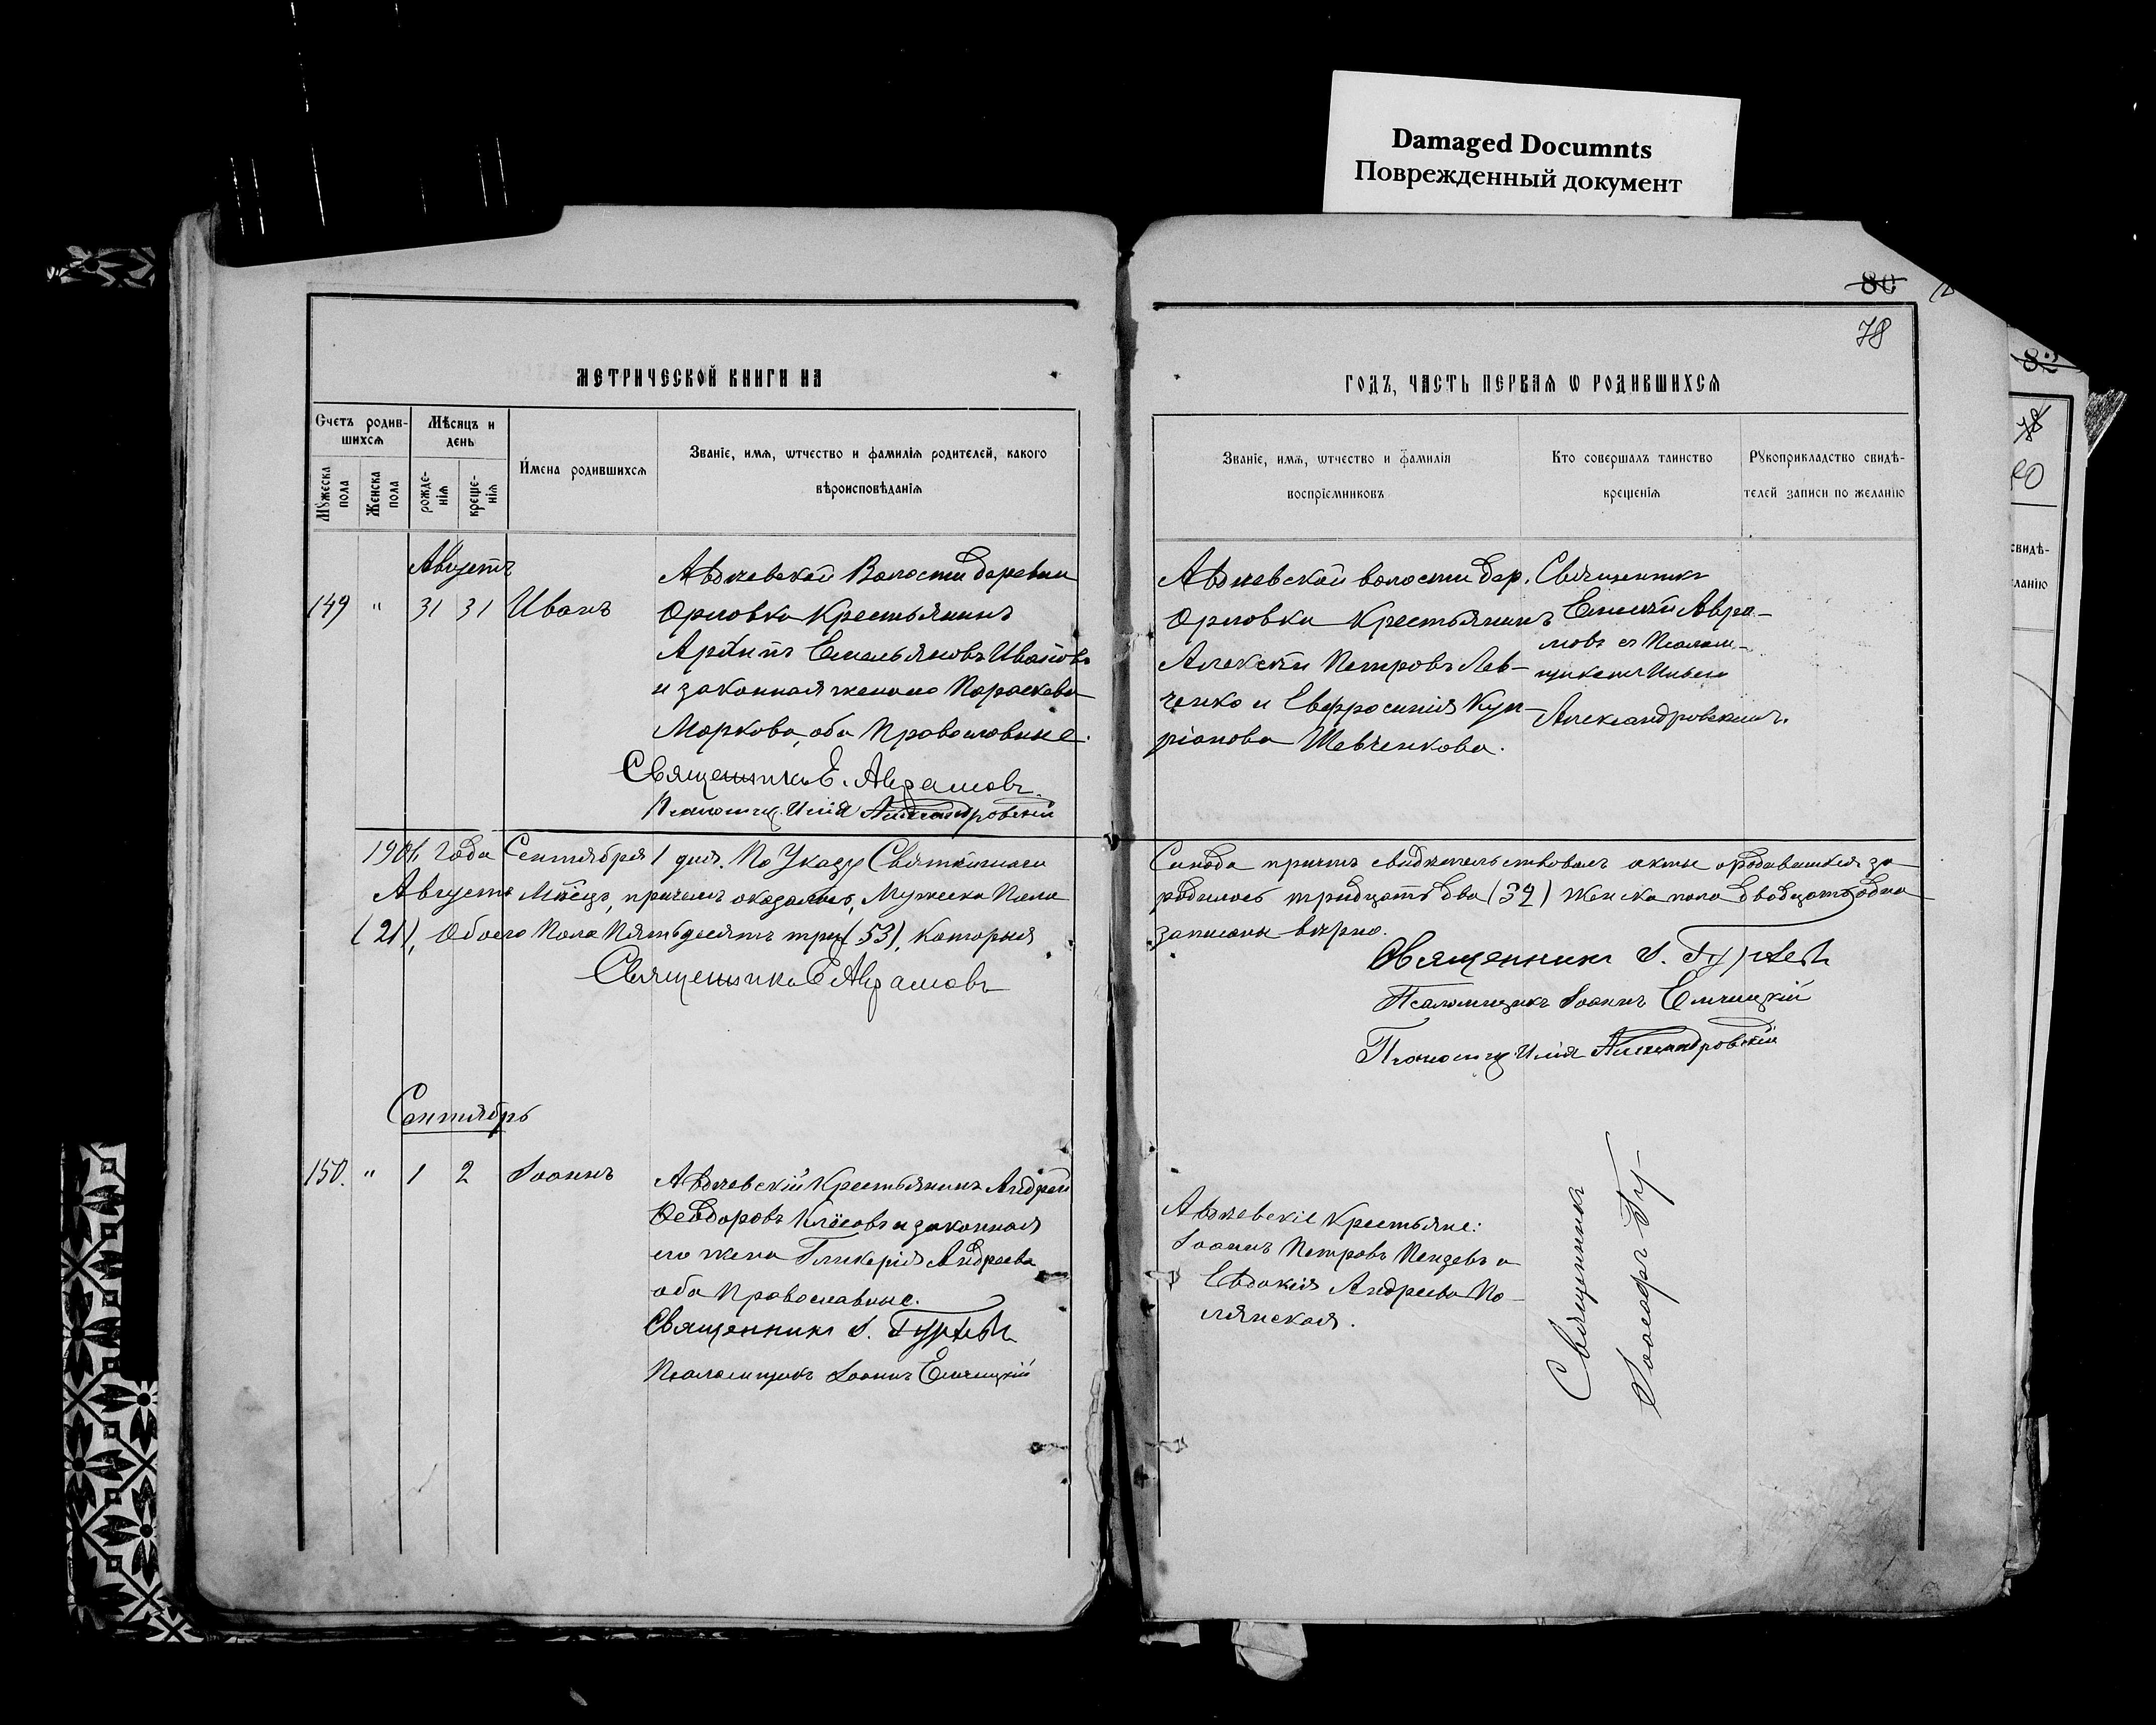 Damaged Documnts
Поврежденный документ
80
78
МЕТРИЧЕСКОЙ КНИГИ НА
ГОДЪ, ЧАСТЬ ПЕРВАЯ Ѡ РОДИВШИХСЯ
Счетъ родив-
шихся
Мѣсяцъ и
день
Мꙋжеска
пола
Женска
пола
рожде-
нія
креще-
нія
Имена родившихся
Званіе, имя, ѡтчество и фамилія родителей, какого
вѣроисповѣданія
Званіе, имя, ѡтчество и фамилія
воспріемниковъ
Кто совершалъ таинство
крещенія
Рꙋкоприкладство свидѣ-
телей записи по желанію
Августъ
149 " 31 31 Иванъ
Волости деревни
Орловки Крестьянинъ
Архипъ Емельяновъ Ивановъ
и законная жена его Параскева
Маркова, оба Православные.
Священникъ Е. Аврамовъ.
Псаломщ. Илія Александровскій
волости дер.
Орловки Крестьянинъ
Алексѣй Петровъ Лев-
ченко и Евфросинія Куп-
ріанова Шевченкова.
Священникъ
Авра-
мовъ съ Псалом-
щикомъ Иліею
Александровскимъ.
Года Сентября 1 дня. По Указу Святѣйшаго
Синода причтъ свидѣтельствовалъ акты о родившихся за
Августъ Мѣсяцъ, причемъ оказалось, Мужеска Пола
родилось тридцать два (32) Женска пола двадцать одна
(21), Обоего Пола Пятьдесятъ три (53), которыя
записаны вѣрно.
Священникъ Е Аврамовъ
Священникъ І. Гуртевъ
Псаломщикъ Іоаннъ
Псаломщ. Илія Александровскій
Сентябрь
150. " 1 2 Іоаннъ
Крестьянинъ Андрей
Ѳеодоровъ и законная
его жена Гликерія Андреева
оба Православные.
Священникъ І. Гуртевъ
Псаломщикъ Іоаннъ
Крестьяне:
Іоаннъ Петровъ и
Евдокія Андреева По-
лянская.
Священникъ